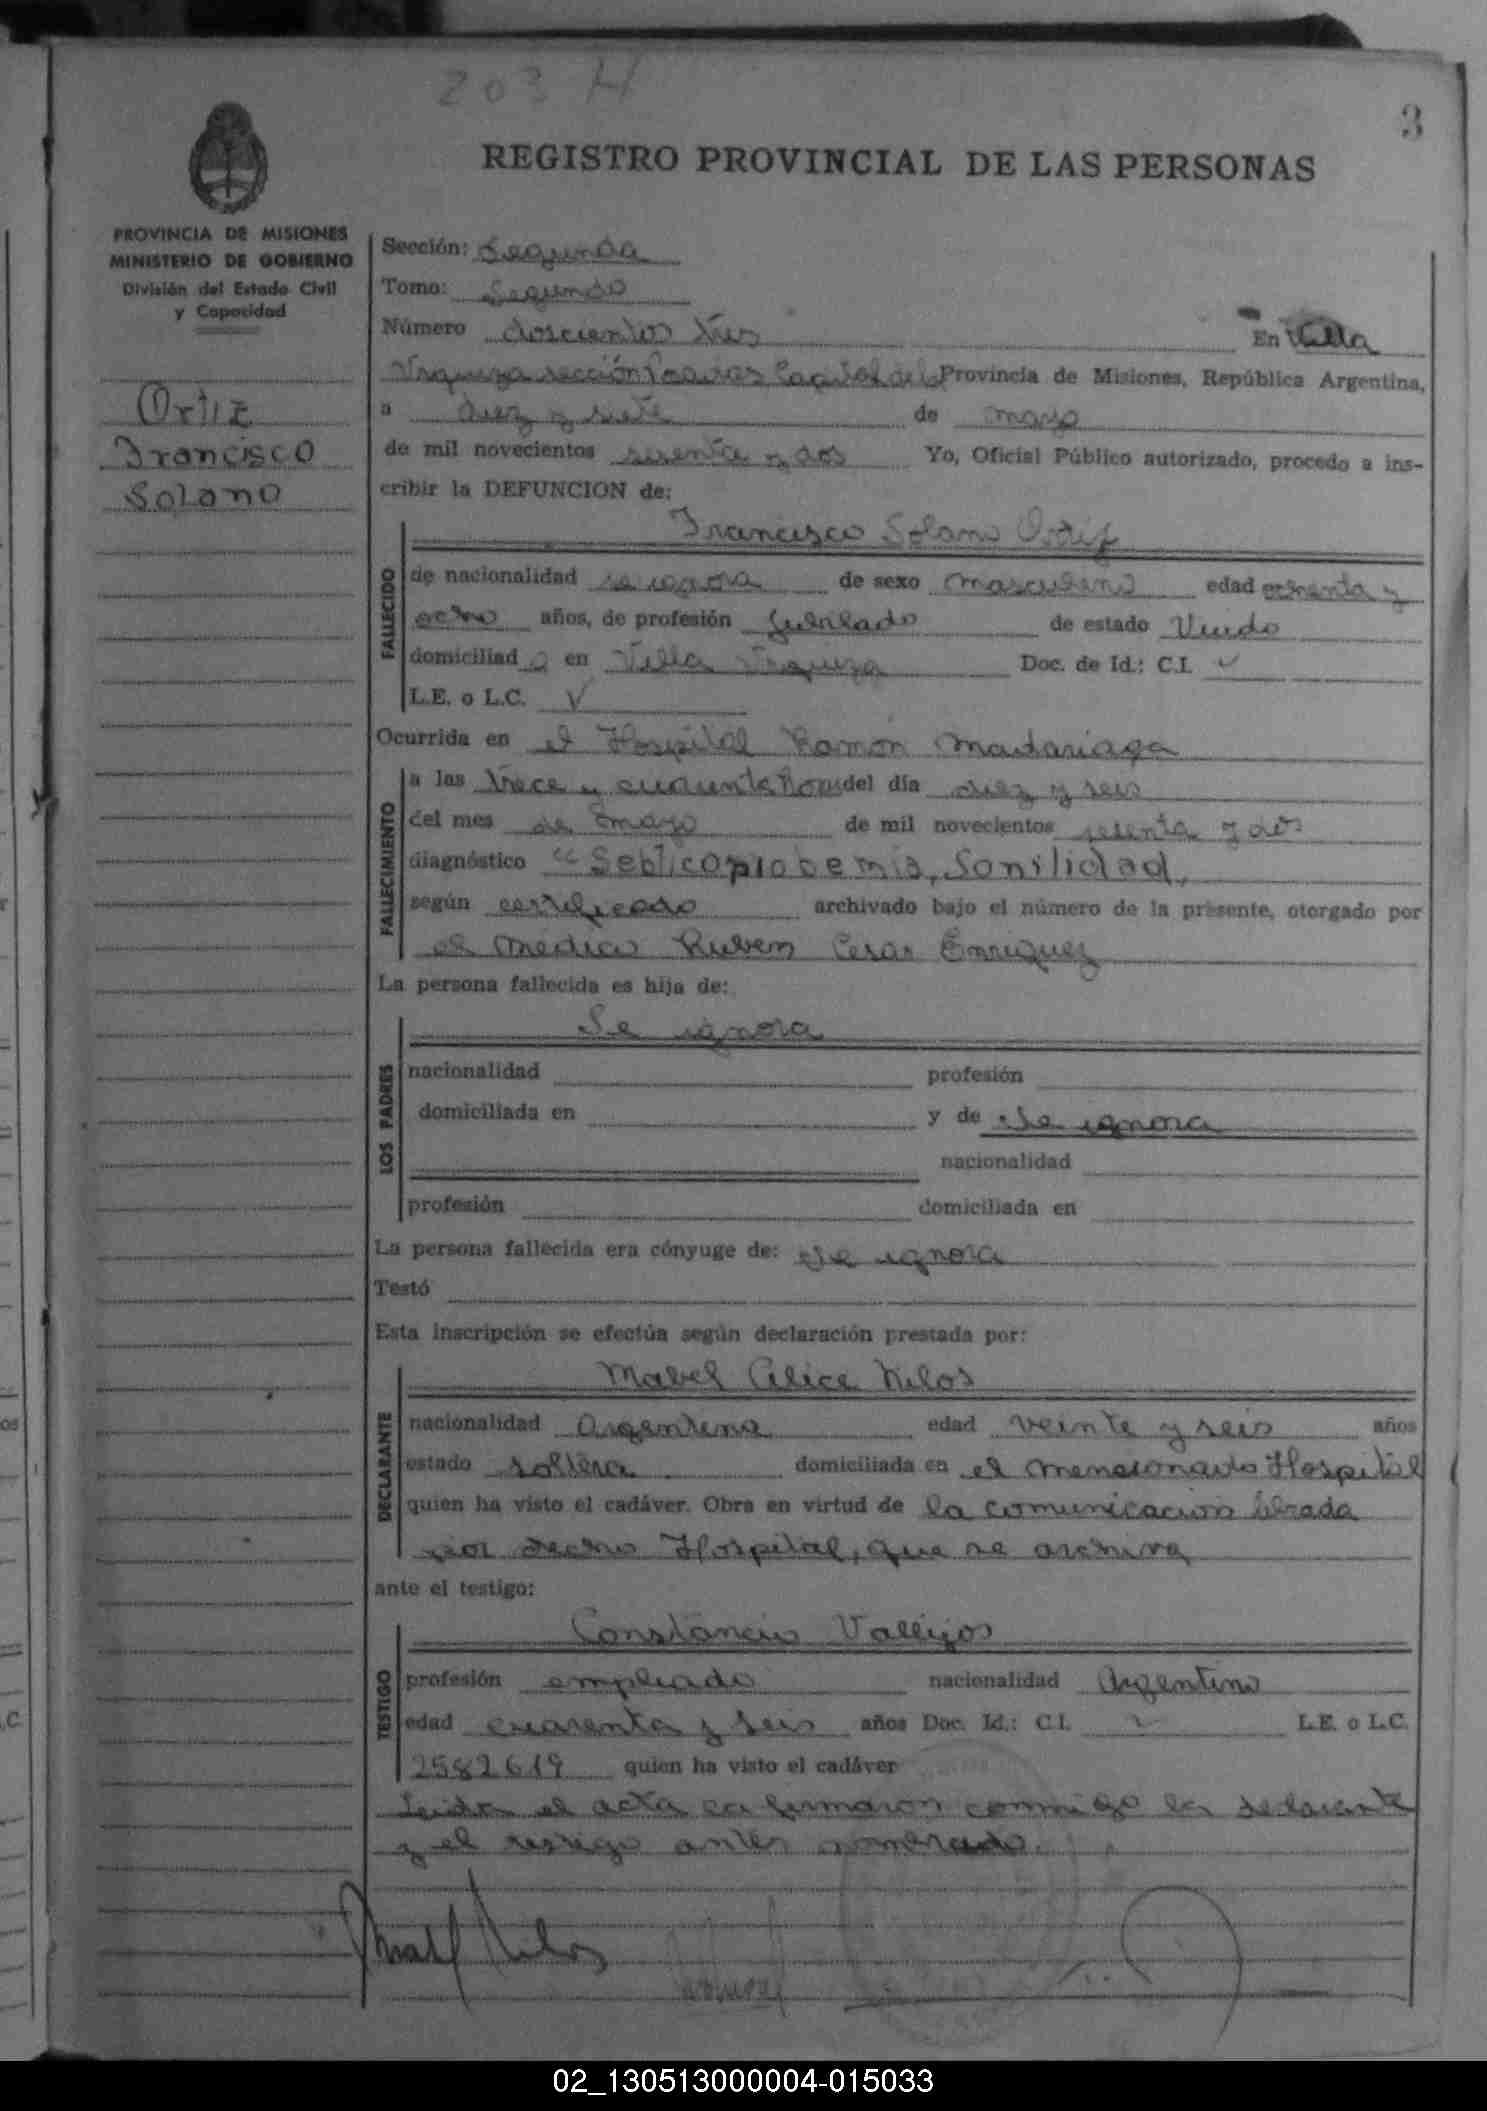 203 H
3
REGISTRO PROVINCIAL DE LAS PERSONAS
PROVINCIA DE MISIONES
MINISTERIO DE GOBIERNO
División del Estado Civil
y Capacidad
Ortiz
Francisco
Solano
Sección: Segunda
Tomo: Segundo
Número doscientos tres En Villa
Urquiza sección Posadas Capital de la Provincia de Misiones, República Argentina,
a diez y siete de mayo
de mil novecientos setenta y dos Yo, Oficial Público autorizado, procedo a ins-
cribir la DEFUNCION de:
Francisco Solano Ortiz
FALLECIDO
de nacionalidad se ignora de sexo masculino edad ochenta y
ocho años, de profesión Jubilado de estado Viudo
domiciliad o en Villa Urquiza Doc. de Id.: C.I.
L.E. o L.C.
Ocurrida en el Hospital Ramón Madariaga
FALLECIMIENTO
a las trece y cuarenta horas del día diez y seis
del mes de mayo de mil novecientos setenta y dos
diagnóstico "Septicopiohemia, Sonilidad,
según certificado archivado bajo el número de la presente, otorgado por
el médico Ruben Cesar Enriquez
La persona fallecida es hija de:
Se ignora
LOS PADRES
nacionalidad profesión
domiciliada en y de Se ignora
nacionalidad
profesión domiciliada en
La persona fallecida era cónyuge de: Se ignora
Testó
Esta inscripción se efectúa según declaración prestada por:
Mabel Alice Nilos
DECLARANTE
nacionalidad Argentina edad veinte y seis años
estado soltera domiciliada en el mencionado Hospital
quien ha visto el cadáver. Obra en virtud de la comunicación librada
por dicho Hospital, que se archiva
ante el testigo:
Constancio Vallejos
TESTIGO
profesión empleado nacionalidad Argentino
edad cuarenta y seis años Doc. Id.: C.I. L.E. o L.C.
2582619 quien ha visto el cadáver
Leida el acta la firmaron conmigo la declarante
y el testigo antes nombrado.
02_130513000004-015033